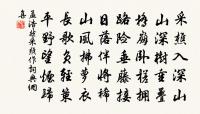 采樵入深山
山深樹重疊
橋崩臥槎擁
路險垂藤接
日落伴將稀
山風拂蘿衣
長歌負輕策
平野望煙歸
孟浩然采樵作詞典網
喜